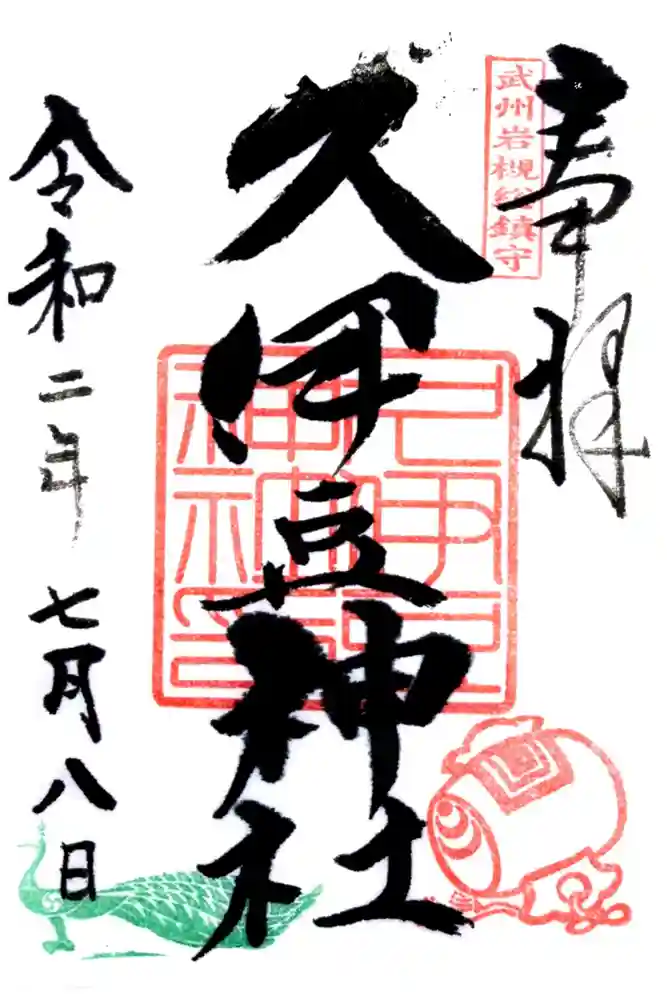 奉拝
武州岩槻総鎮守
久伊豆神社
令和二年七月八日